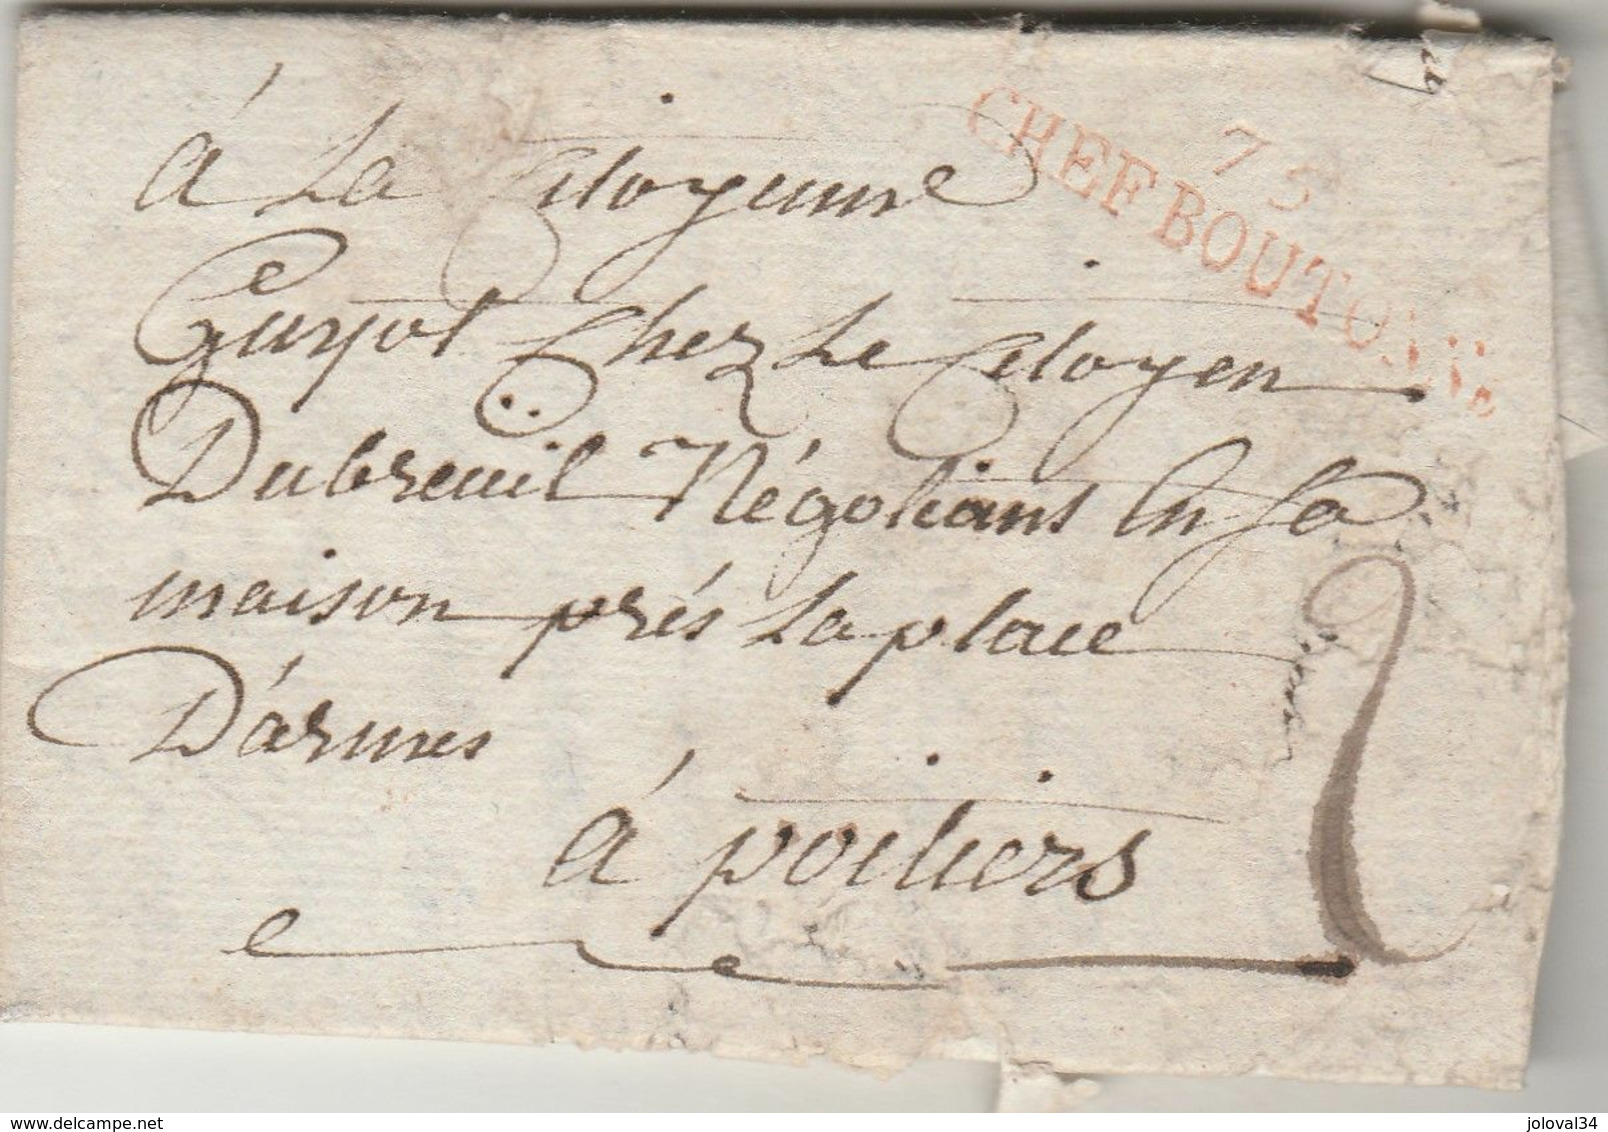 75
CHEF BOUTONNE
á La Citoyenne
Guyot Chez Le Citoyen
Dubreuil Négotians En Sa
maison prés La place
D'armes
á poitiers
2
delcampe.net
joloval34